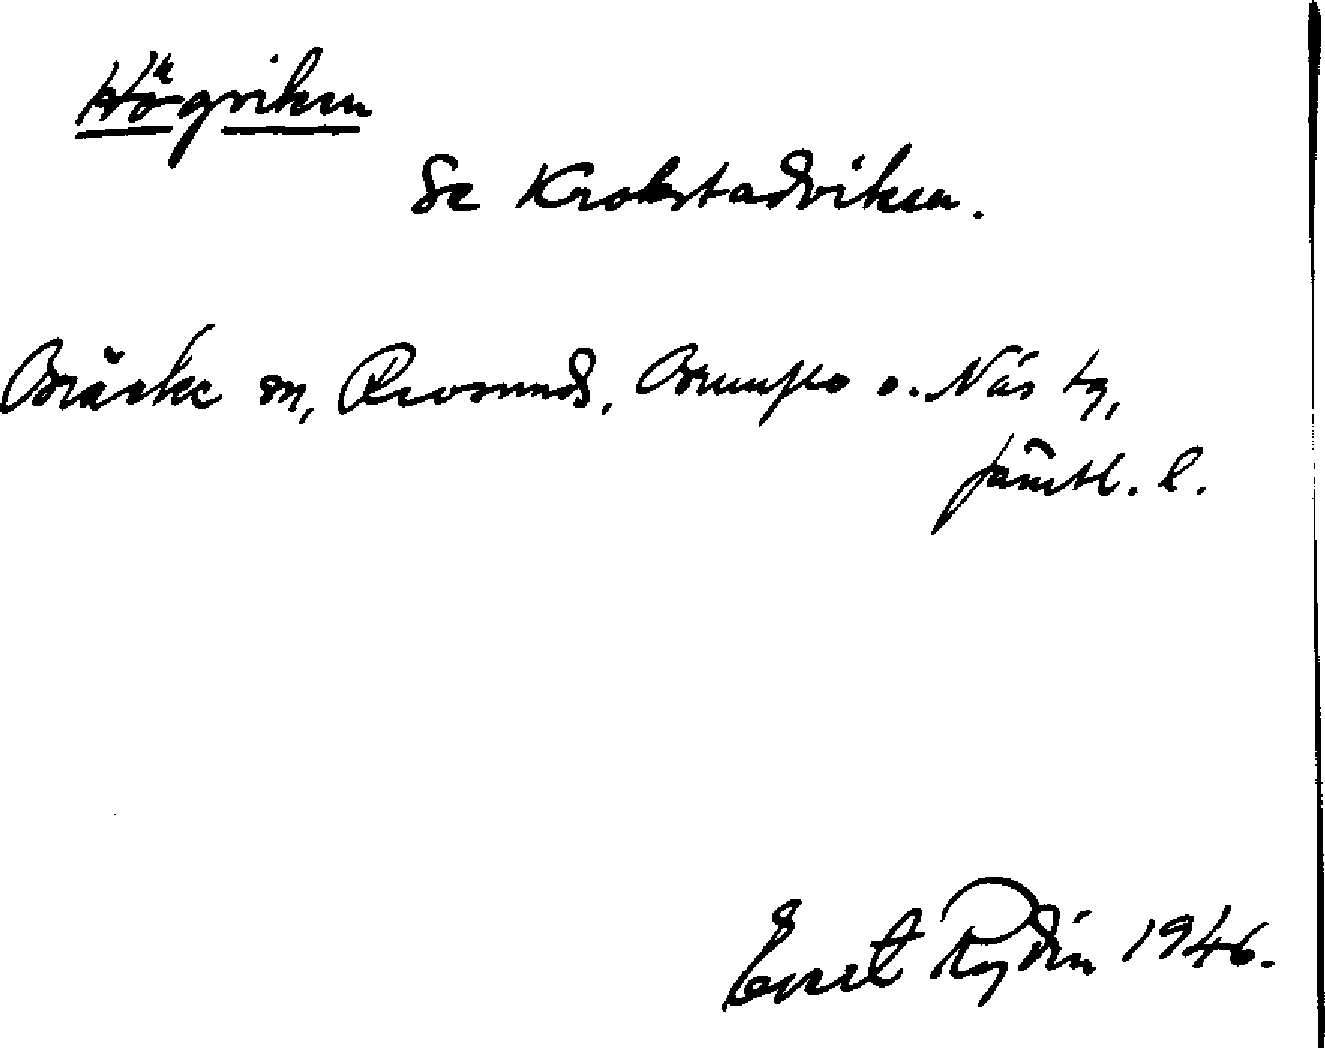 Högviken
Se Krokstadviken.
Bräcke m, Revsunds, Brunflo o. Näs tg,
Jämtl. l.
Evert Rydin 1946.